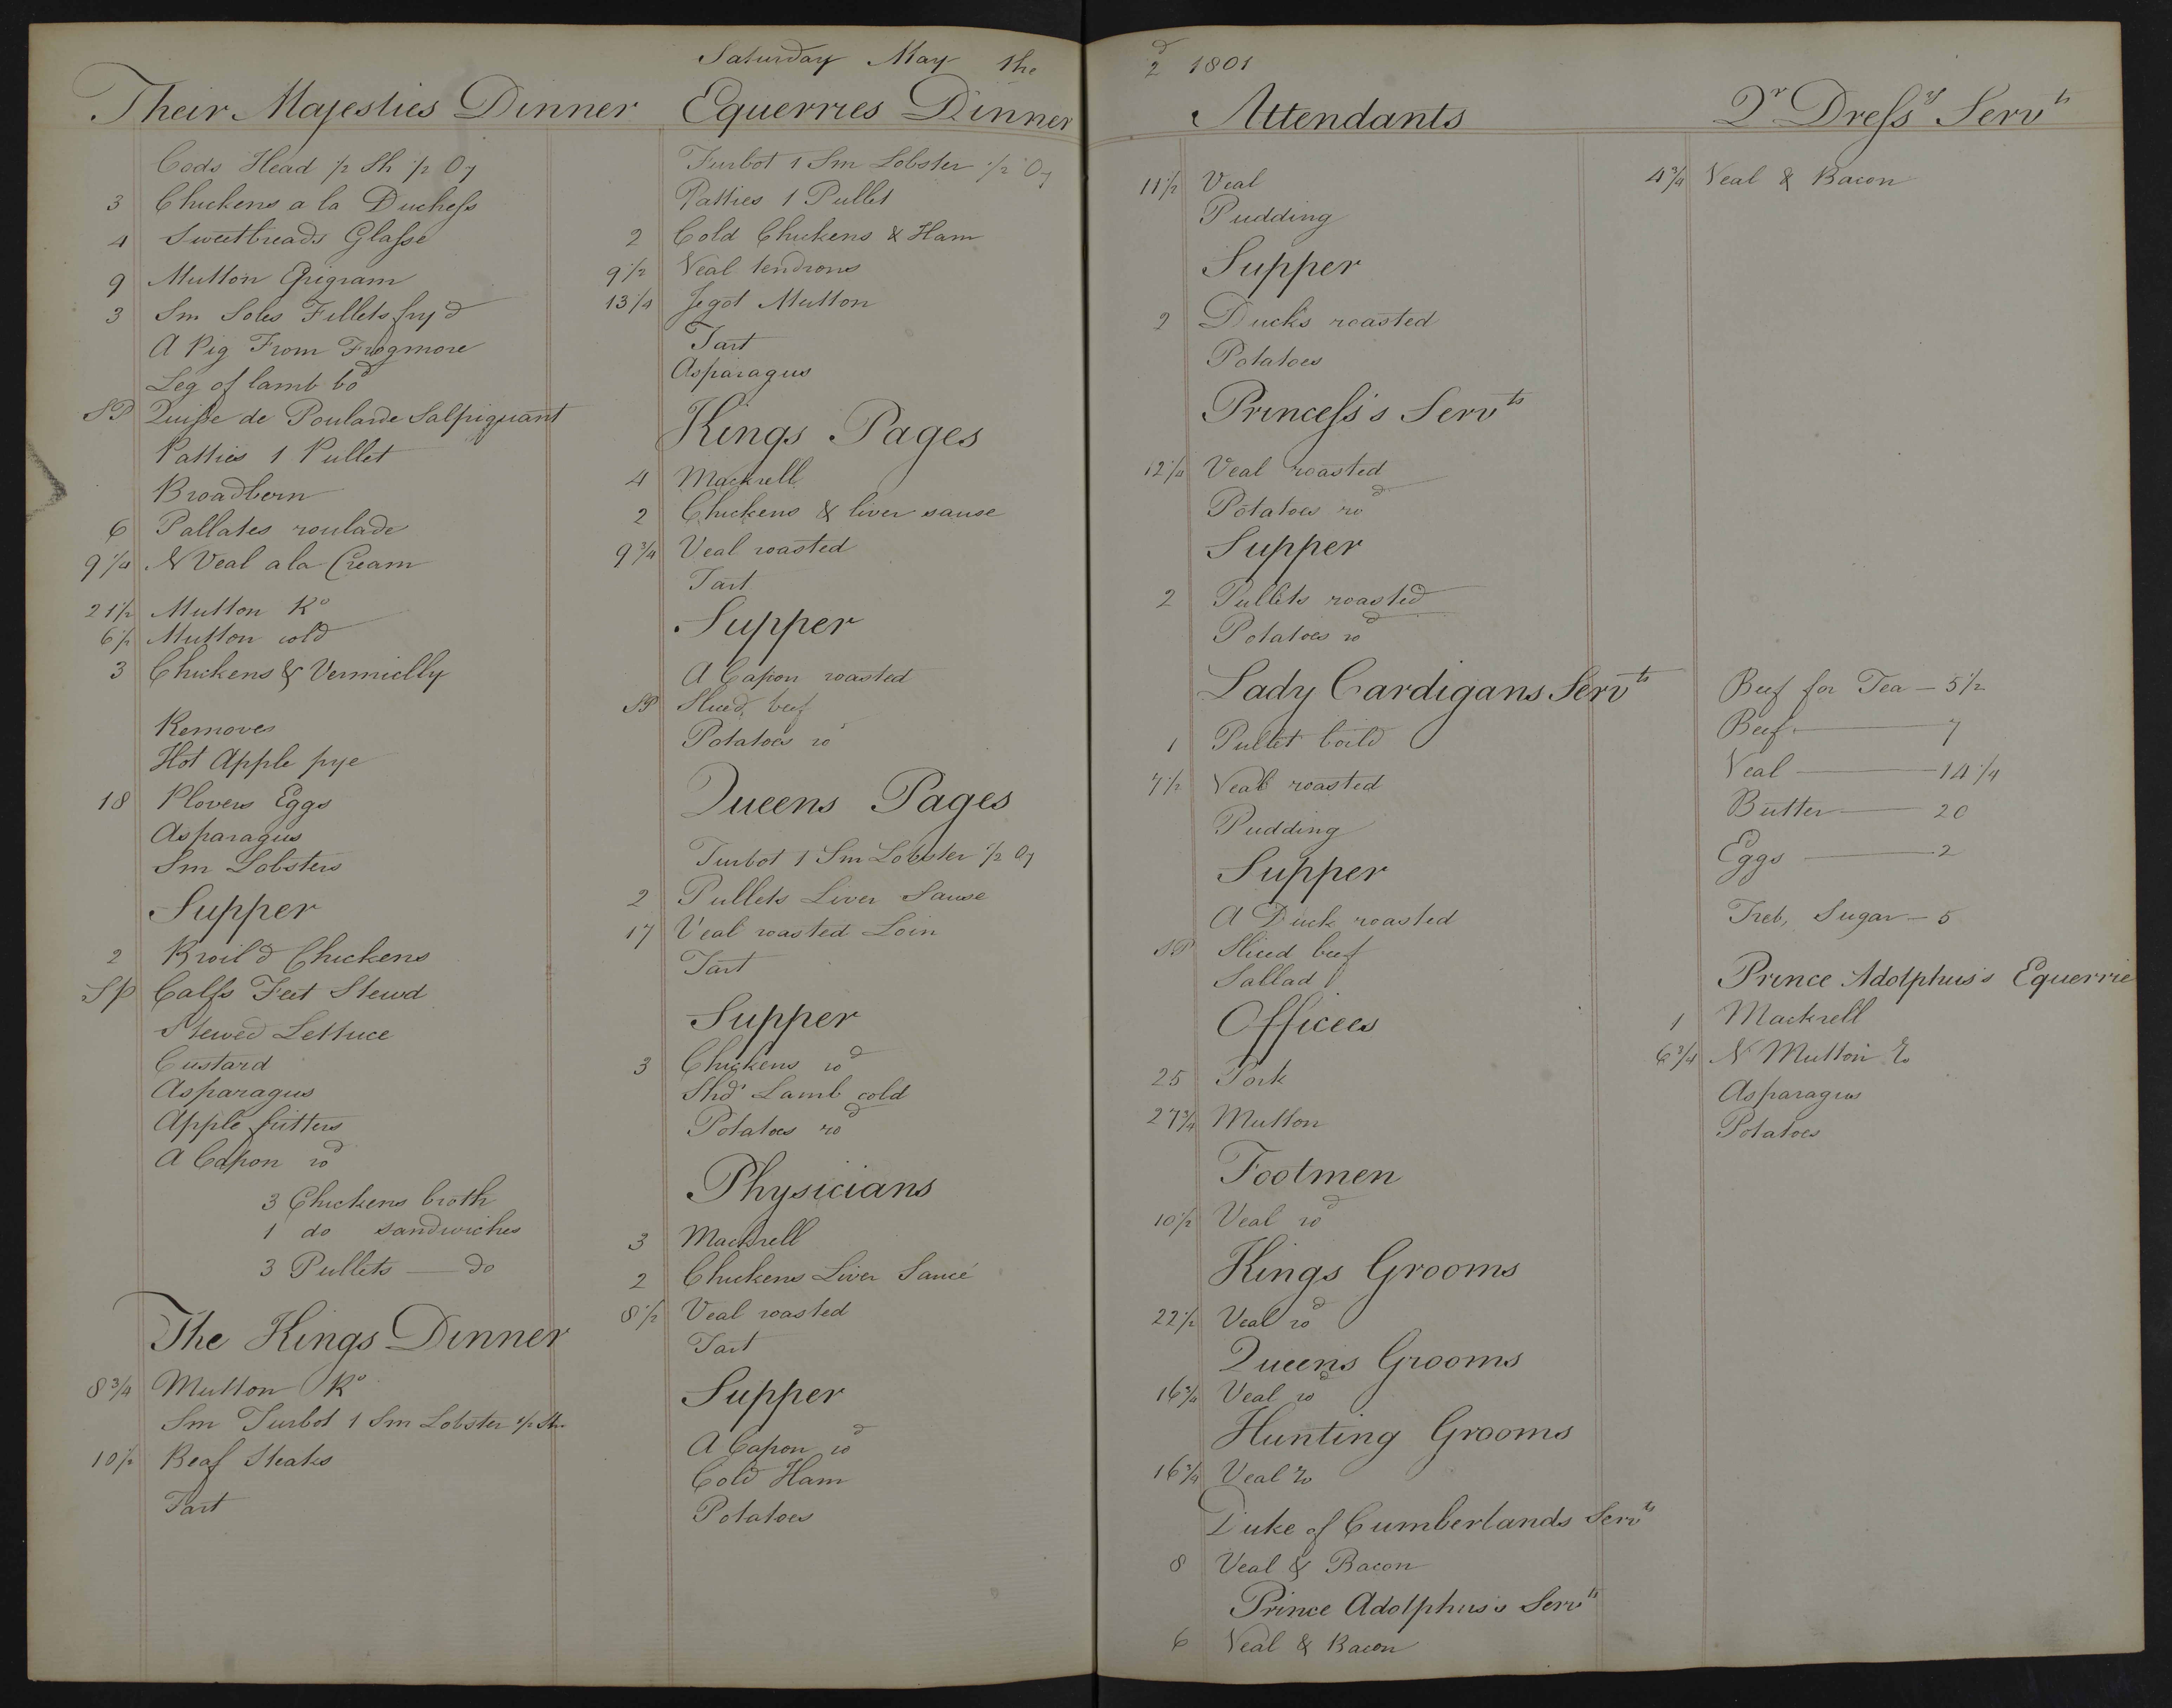 Saturday May the
2d 1801
Their Majesties Dinner
Cods Head ½ Sh ½ Oy
3 Chickens a la Duchess
4 Sweetbreads Glasse
9 Mutton Epigram
3 Sm Soles Fillets fryd
A Pig From Frogmore
Leg of lamb bod
SP Quisse de Poularde Salpiquant
Patties 1 Pullet
Broadbern
6 Pallates roulade
9¼ N Veal a la Cream
21½ Mutton Ro
6½ Mutton cold
3 Chickens & Vermielly
Removes
Hot Apple pye
18 Plovers Eggs
Asparagus
Sm Lobsters
Supper
2 Broil'd Chickens
SP Calfs Feet Stewd
Stewed Lettuce
Custard
Asparagus
Apple fritters
A Capon rod
3 Chickens broth
1 do sandwiches
3 Pullets — do
The Kings Dinner
8¾ Mutton Ro
Sm Turbot 1 Sm Lobster ½ Sh
10½ Beaf Steaks
Tart
Equerries Dinner
Turbot 1 Sm Lobster ½ Oy
Patties 1 Pullet
2 Cold Chickens & Ham
9½ Veal tendrons
13¼ Jegot Mutton
Tart
Asparagus
Kings Pages
4 Mackrell
2 Chickens & liver sause
9¾ Veal roasted
Tart
Supper
A Capon roasted
SP Sliced beef
Potatoes rod
Queens Pages
Turbot 1 Sm Lobster ½ Oy
2 Pullets Liver Sause
17 Veal roasted Loin
Tart
Supper
3 Chickens rod
Shd Lamb cold
Potatoes rod
Physicians
3 Mackrell
2 Chickens Liver Sauce
8½ Veal roasted
Tart
Supper
A Capon rod
Cold Ham
Potatoes
Attendants
11½ Veal
Pudding
Supper
2 Ducks roasted
Potatoes
Princess's Servts
12¼ Veal roasted
Potatoes rod
Supper
2 Pullets roasted
Potatoes rod
Lady Cardigans Servts
1 Pullet boild
7½ Veal roasted
Pudding
Supper
A Duck roasted
SP Sliced beef
Sallad
Offices
25 Pork
27¾ Mutton
Footmen
10½ Veal rod
Kings Grooms
22½ Veal rod
Queens Grooms
16¾ Veal rod
Hunting Grooms
16¾ Veal Ro
Duke of Cumberlands Servts
8 Veal & Bacon
Prince Adolphus's Servts
6 Veal & Bacon
Qr Dressrs Servts
4¾ Veal & Bacon
Beef for Tea — 5½
Beef — 7
Veal — 14¼
Butter — 20
Eggs — 2
Treb, Sugar — 5
Prince Adolphus's Equerrie
1 Mackrell
6¾ N Mutton Ro
Asparagus
Potatoes